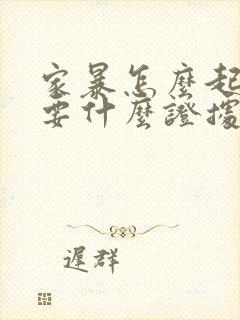 家暴怎麼起
要什麼證據
遲群